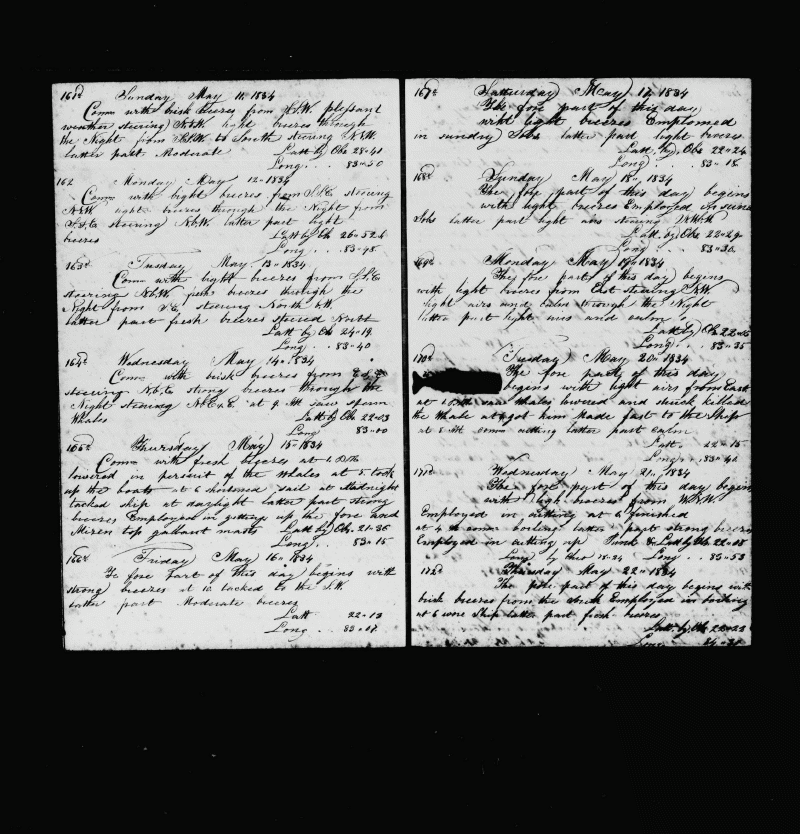 161d Sunday May 11. 1834
Com with brisk breezes from plessant
weather steering N.W. light breezes through
the Night from to South steering N.W.
latter part Moderate Latt by Obs 28-41
Long . . 83-50
162 Monday May 12 1834
Com with light breezes from S.S.E. steering
N.N.W light breezes through the Night from
S.S.E steering N.b.W. latter part light
breezes Latt by Ob 26-52
Long . . 83-48
163d Tusday May 13 1834
Com with light breezes from S.S.E
steering N.b.W fresh breezes through the
Night from steering North
latter part fresh breezes steered North
Latt by Ob 24-19
Long . . 83-40
164d Wednesday May 14 1834
Com with brisk breezes from
steering N.b.E strong breezes through the
Night steering N.b.E. at 9 AM saw sperm
Whales Latt by Obs 22-03
Long 83-00
165d Thursday May 15 1834
Com with fresh bigezes at 1
lowered in persuit of the Whales at 5 took
up the boats at 6 shortened sail at Madnight
tacked ship at daylight latter part strong
breezes Employed in getting up the fore and
Mizen top gallant mast Latt by Obs. 21-36
Long . . 83-15
166d Friday May 16 1834
Ye fore part of this day begins with
strong breezes at 10 tacked to the S.W.
Latter part Moderate breezes
Latt 22-13
Long . . 83-07
167d Satturday May 17 1834
The fore part of this day
with light breezes Employed
in sunday Jobs latter part light breezes
Latt by Obs 22-24
Long . . 83-18
168d Sunday May 18 1834
The fore part of this day begins
with light breezes Employed in
Jobs latter part light airs steering
Latt by Obs 22-29
Long . . 83-30
169d Monday May 19 1834
The fore part of this day begins
with light breezes from East steering N.W
light airs and calm through the Night
latter part light airs and calm
Latt by Ob 22-
Long . . 83-35
170d Tusday May 20 1834
The fore part of this day
begins with light airs from East
at 1 saw whales lowered and struck killed
the whale at got him made fast to the Ship
at 5 AM comm cutting latter part calm
Latt. 22-15
Long . . 83-42
171d Wednesday May 21 1834
The fore part of this day begins
with light breezes from W.N.W
Employed in cutting at 6 finished
at 4 comm boiling latter part strong breezes
Employed in cutting up Latt by Obs 22-08
Long by Chro 18-24 Long . . 83-53
172d Thursday May 22 1834
The fore part of this day begins with
brisk breezes from the Employed in boiling
at 6 wore Ship latter part fresh breezes
Latt by Obs 22-23
Long . . 84-